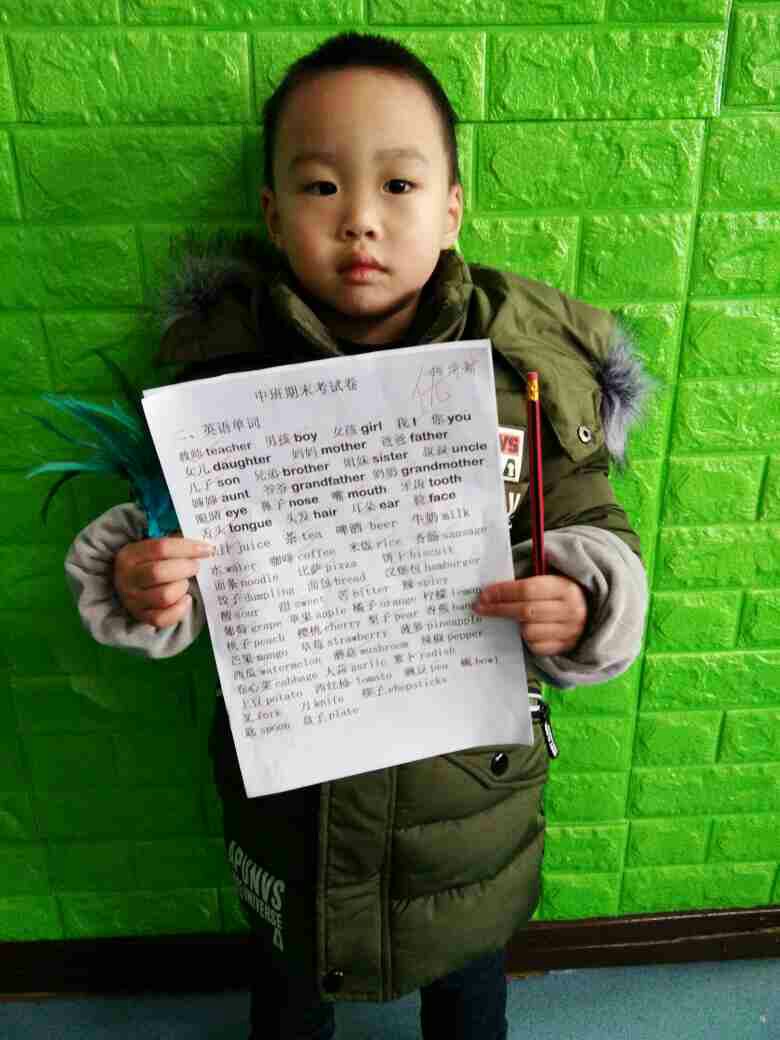 中班期末考试卷
优
二、英语单词
教师 teacher 男孩 boy 女孩 girl 我 I 你 you
女儿 daughter 妈妈 mother 爸爸 father
儿子 son 兄弟 brother 姐妹 sister 叔叔 uncle
婶婶 aunt 爷爷 grandfather 奶奶 grandmother
眼睛 eye 鼻子 nose 嘴 mouth 牙齿 tooth
舌头 tongue 头发 hair 耳朵 ear 脸 face
汁 juice 茶 tea 啤酒 beer 牛奶 milk
水 water 咖啡 coffee 米饭 rice 香肠 sausage
面条 noodle 比萨 pizza 饼干 biscuit
饺子 dumpling 面包 bread 汉堡包 hamburger
酸 sour 甜 sweet 苦 bitter 辣 spicy
葡萄 grape 苹果 apple 橘子 orange 柠檬 lemon
桃子 peach 樱桃 cherry 梨子 pear 香蕉
芒果 mango 草莓 strawberry 菠萝 pineapple
西瓜 watermelon 蘑菇 mushroom 辣椒 pepper
卷心菜 cabbage 大蒜 garlic 萝卜 radish
土豆 potato 西红柿 tomato 豌豆 pea 碗 bowl
叉 fork 刀 knife 筷子 chopsticks
匙 spoon 盘子 plate
APUNVS
UNIVERSE